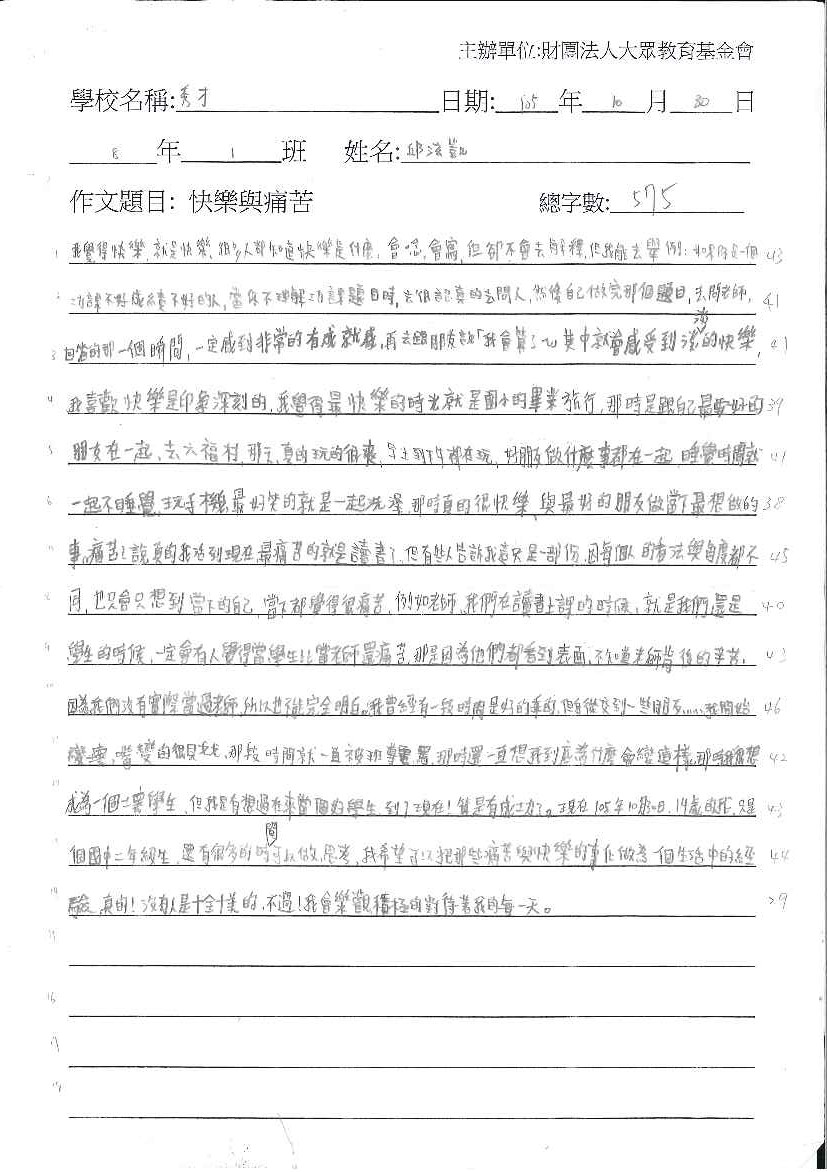 主辦單位:財團法人大眾教育基金會
學校名稱:秀才 日期: 105 年 10 月 30 日
8 年 1 班 姓名: 邱 凱
作文題目: 快樂與痛苦 總字數: 575
1 我覺得快樂,就是快樂,很多人都知道快樂是什麼,會唸,會寫,但卻不會去解釋,但我能去舉例:如果你是一個 43
2 功課不好成績不好的人,當你不理解功課題目時,去很認真的去問人,然後自己做完那個題目,去問老師, 41
3 回答的那一個瞬間,一定感到非常的有成就感,再去跟朋友說「我會算了~」其中就會感受到 的快樂, 41
4 我喜歡快樂是印象深刻的,我覺得最快樂的時光就是國小的畢業旅行,那時是跟自己最要好的 39
5 朋友在一起,去六福村,那天,真的玩的很爽,早上到下午都在玩,好朋友做什麼事都在一起,睡覺時間就 41
6 一起不睡覺,玩手機,最好笑的就是一起洗澡,那時真的很快樂,與最好的朋友做當下最想做的 38
7 事,痛苦?說真的我活到現在最痛苦的就是讀書了,但有些人告訴我這只是一部份,因每個人的看法與角度都不 45
8 同,也只會只想到當下的自己,當下都覺得很痛苦,例如老師,我們在讀書上課的時候,就是我們還是 40
9 學生的時候,一定會有人覺得當學生比當老師還痛苦,那是因為他們都看到表面,不知道老師背後的辛苦, 43
因為我們沒有實際當過老師,所以也不能完全明白。我曾經有一段時間是好的乖的,但自從交到一些朋友……我開始 46
變壞,嘴變的很臭,那段時間就一直被班導罵,那時還一直想我到底為什麼會變這樣,那時我很想 42
成為一個壞學生,但我是有想過在來當個好學生,到了現在!算是有成功了。現在105年10月30日,14歲的我,只是 43
個國中二年級生,還有很多的時間可以做,思考,我希望可以把那些痛苦與快樂的事化做為一個生活中的經 44
14 驗,真的!沒有人是十全十美的,不過!我會樂觀積極的對待著我的每一天。 29
16
17